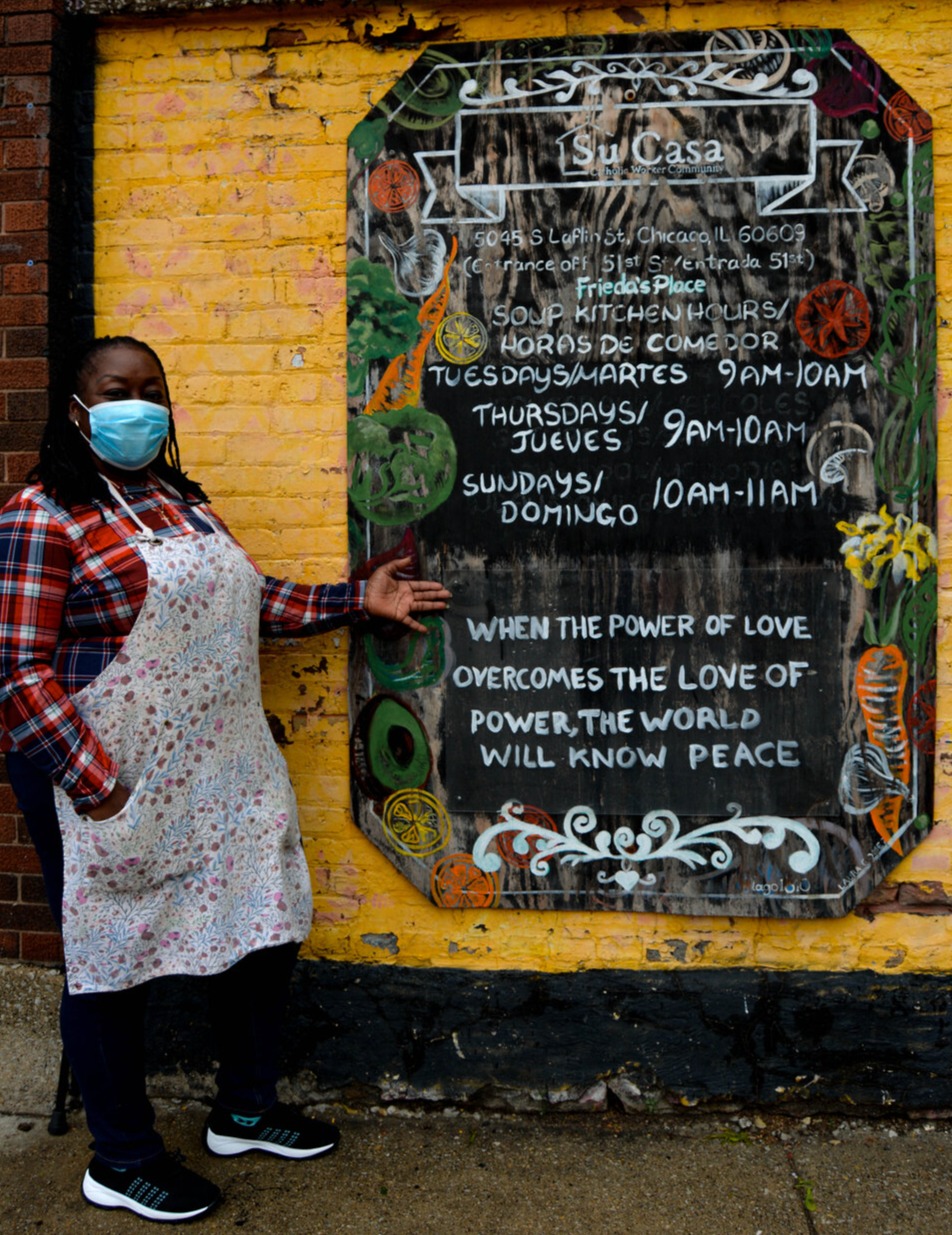 Su Casa
Catholic Worker Community
5045 S Laflin St, Chicago, IL 60609
(Entrance off 51st St /Entrada 51st)
Frieda's Place
SOUP KITCHEN HOURS/
HORAS DE COMEDOR
TUESDAYS/MARTES 9AM-10AM
THURSDAYS/
JUEVES 9AM-10AM
SUNDAYS/
DOMINGO 10AM-11AM
WHEN THE POWER OF LOVE
OVERCOMES THE LOVE OF
POWER, THE WORLD
WILL KNOW PEACE